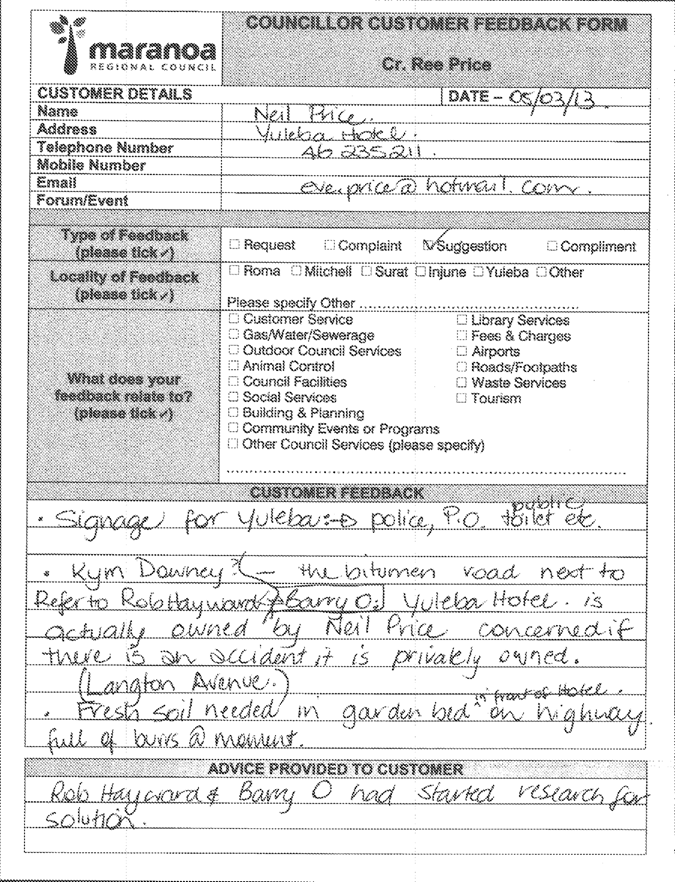 maranoa
REGIONAL COUNCIL
COUNCILLOR CUSTOMER FEEDBACK FORM
Cr. Ree Price
CUSTOMER DETAILS
DATE – 05/03/13.
Name Neil Price.
Address Yuleba Hotel.
Telephone Number 46 235211.
Mobile Number
Email eve.price@hotmail.com.
Forum/Event
Type of Feedback
(please tick ✓)
☐ Request ☐ Complaint ☑ Suggestion ☐ Compliment
Locality of Feedback
(please tick ✓)
☐ Roma ☐ Mitchell ☐ Surat ☐ Injune ☐ Yuleba ☐ Other
Please specify Other ........................................................
What does your
feedback relate to?
(please tick ✓)
☐ Customer Service
☐ Gas/Water/Sewerage
☐ Outdoor Council Services
☐ Animal Control
☐ Council Facilities
☐ Social Services
☐ Building & Planning
☐ Community Events or Programs
☐ Other Council Services (please specify)
☐ Library Services
☐ Fees & Charges
☐ Airports
☐ Roads/Footpaths
☐ Waste Services
☐ Tourism
CUSTOMER FEEDBACK
public
• Signage for Yuleba:→ police, P.O. toilet etc.
• Kym Downey? – the bitumen road next to
Refer to Rob Hayward & Barry O. Yuleba Hotel. is
actually owned by Neil Price concerned if
there is an accident it is privately owned.
(Langton Avenue.)
in front of Hotel.
• Fresh soil needed in garden bed on highway.
full of burrs @ moment.
ADVICE PROVIDED TO CUSTOMER
Rob Hayward & Barry O had started research for
solution.